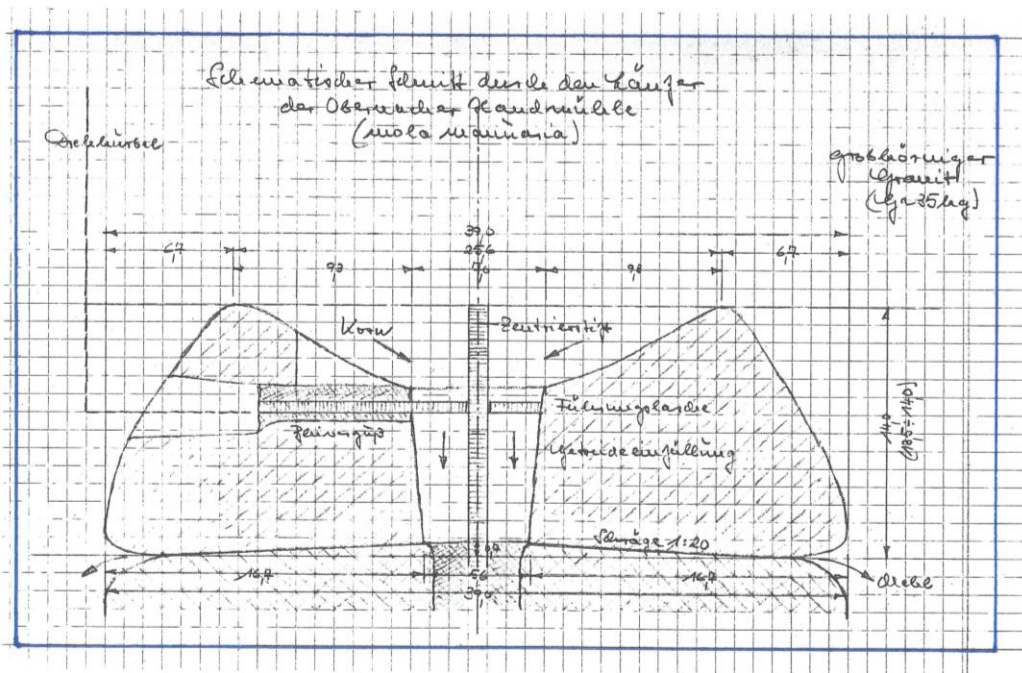 Schematischer Schnitt durch den Läufer
der Obernacher Handmühle
(mola manuaria)
Drehkurbel
grobkörniger
Granit
(G≈35kg)
39,0
6,7
25,6
6,7
9,3
7,0
9,3
Korn
Zentrierstift
Führungslasche
Bleiverguß
Getreideeinfüllung
14,0
(13,5÷14,0)
Schräge 1:20
0,7
16,7
5,6
16,7
39,0
Mehl